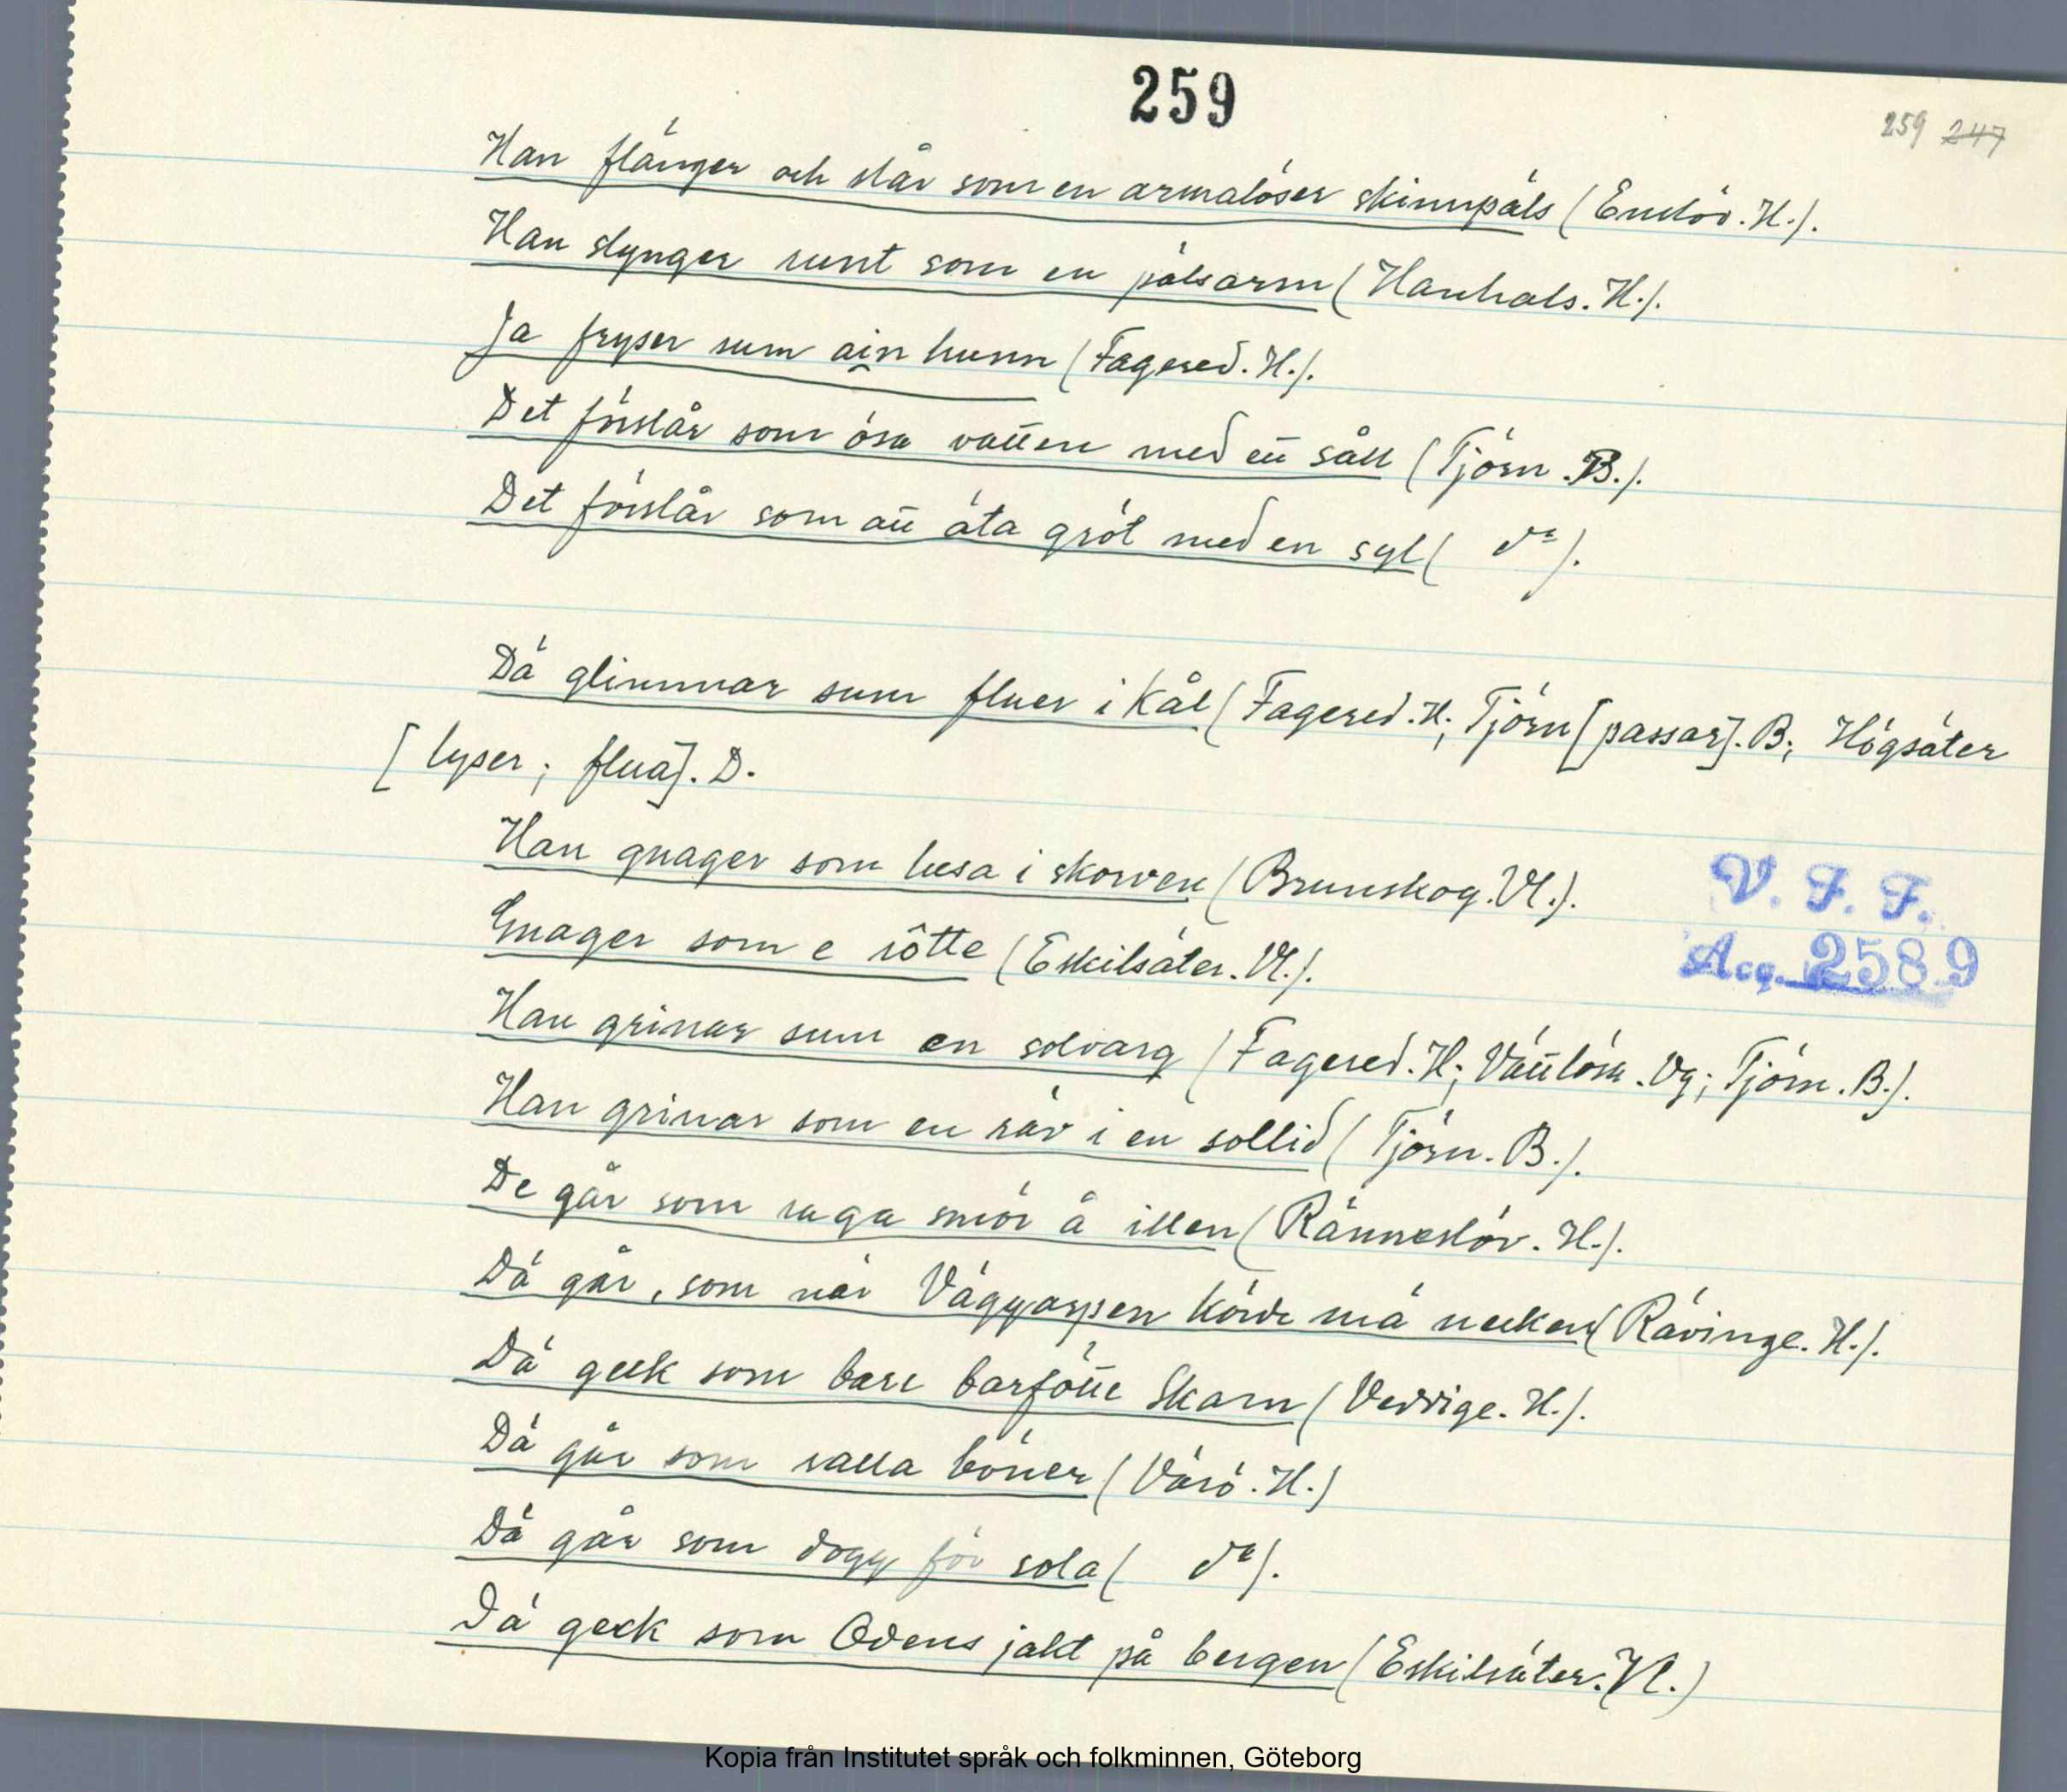 259
259 247
Han flänger och slår som en armalöser skinnpäls (Enslöv. H.).
Han slynger runt som en pälsarm (Hanhals. H.).
Ja fryser sum ain hunn (Fagered. H.).
Det förslår som ösa vatten med ett såll (Tjörn. B.).
Det förslår som att äta gröt med en syl ( do ).
Dä glimmar sum fluer i kål (Fagered. H.; Tjörn [passar]. B; Högsäter
[lyser; fluä]. D.
Han gnager som lusa i skorven (Brunskog. Vl.).
V. F. F.
Gnager som e rôtte (Eskilsäter. Vl.).
Acc. 2589
Han grinar sum en solvarg (Fagered. H.; Vättlösa. Vg; Tjörn. B.).
Han grinar som en räv i en sollid (Tjörn. B.).
De går som ruga smör å illen (Ränneslöv. H.).
Dä går, som när Väggaspen körde mä necken (Rävinge. H.).
Dä geck som bare barfötte Skam (Veddige. H.).
Dä går som ralla böner (Värö. H.)
Dä går som dogg för sola ( do ).
Dä geck som Odens jakt på bergen (Eskilsäter. Vl.)
Kopia från Institutet språk och folkminnen, Göteborg